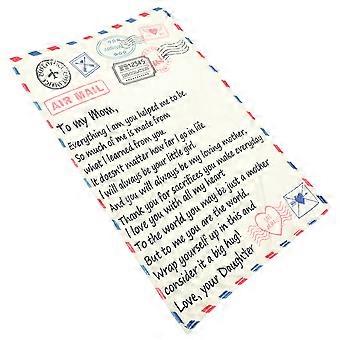 AIR MAIL
To my Mom,
Everything I am you helped me to be
So much of me is made from
what I learned from you
It doesn't matter how far I go in life
I will always be your little girl
And you will always be my loving mother,
Thank you for sacrifices you make everyday
I love you with all my heart
To the world you may be just a mother
But to me you are the world.
Wrap yourself up in this and
consider it a big hug!
Love, your Daughter